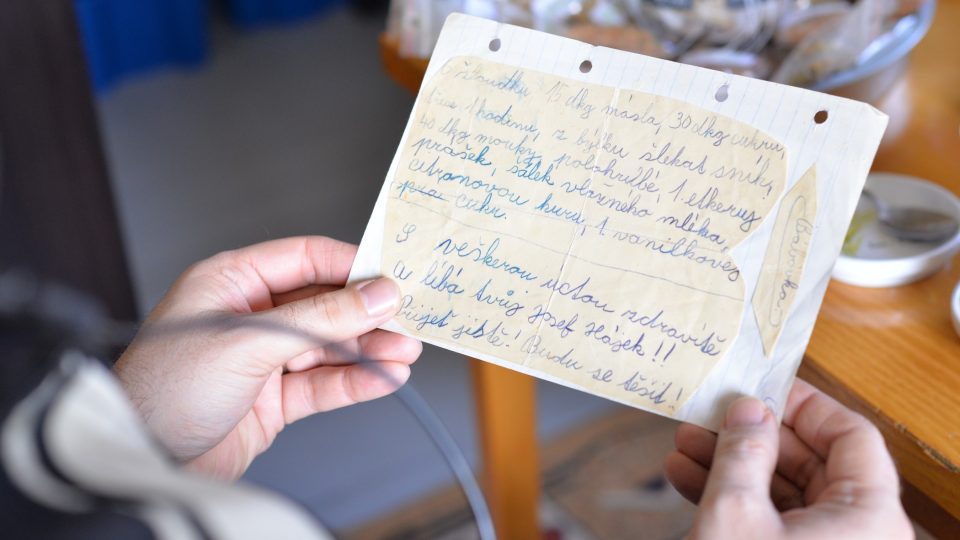 15 dkg másla, 30 dkg cukru,
1 hodinu, z bílku šlehat sníh,
40 dkg mouky, polohrubé, 1
prášek, šálek vlažného mléka,
citronovou kuru, 1 vanilkovej
cukr.
S veškerou úctou zdravíte
a líbá tvůj josef Hájek!!
Přijet jistě! Budu se těšit!
Bábovka